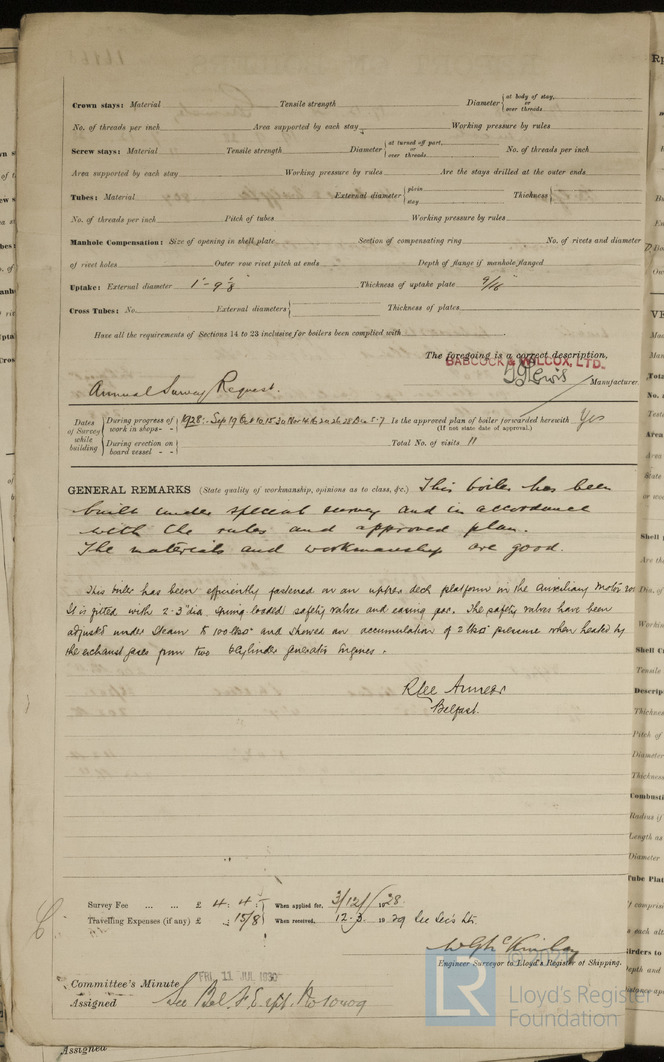 Crown stays: Material Tensile strength Diameter at body of stay, or over threads
No. of threads per inch Area supported by each stay Working pressure by rules
Screw stays: Material Tensile strength Diameter at turned off part, or over threads No. of threads per inch
Area supported by each stay Working pressure by rules Are the stays drilled at the outer ends
Tubes: Material External diameter plain stay Thickness
No. of threads per inch Pitch of tubes Working pressure by rules
Manhole Compensation: Size of opening in shell plate Section of compensating ring No. of rivets and diameter
of rivet holes Outer row rivet pitch at ends Depth of flange if manhole flanged
Uptake: External diameter 1'-9 Thickness of uptake plate 9/16
Cross Tubes: No. External diameters Thickness of plates
Have all the requirements of Sections 14 to 23 inclusive for boilers been complied with
The foregoing is a correct description,
BABCOCK & WILCOX, LTD.
Lewis Manufacturer
Annual Survey Request.
Dates of Survey while building During progress of work in shops - - 1928:- Sep 19 Oct 10.15.30 Nov 20 26 28 Dec 5.7 Is the approved plan of boiler forwarded herewith Yes
(If not state date of approval.)
During erection on board vessel - - Total No. of visits 11
GENERAL REMARKS (State quality of workmanship, opinions as to class, &c.) This boiler has been
built under special survey and in accordance
with the rules and approved plan.
The materials and workmanship are good.
This boiler has been efficiently fastened on an upper deck platform in the Auxiliary Motor
It is fitted with 2 - 3" dia. spring loaded safety valves and easing gear. The safety valves have been
adjusted under steam to 100 lbs and showed an accumulation of 2 lbs pressure when heated by
the exhaust gases from two 6 cylinder generator engines.
R Lee
Belfast.
Survey Fee ... ... £ 4 : 4 : When applied for, 3/12/1928
Travelling Expenses (if any) £ : 15/8 When received, 12-3 1929
Engineer Surveyor to Lloyd's Register of Shipping.
Committee's Minute FRI. 11 JUL 1930
Assigned See Bel. F.E. rpt. No 10409
Assigned
LR
© 2021
Lloyd's Register
Foundation